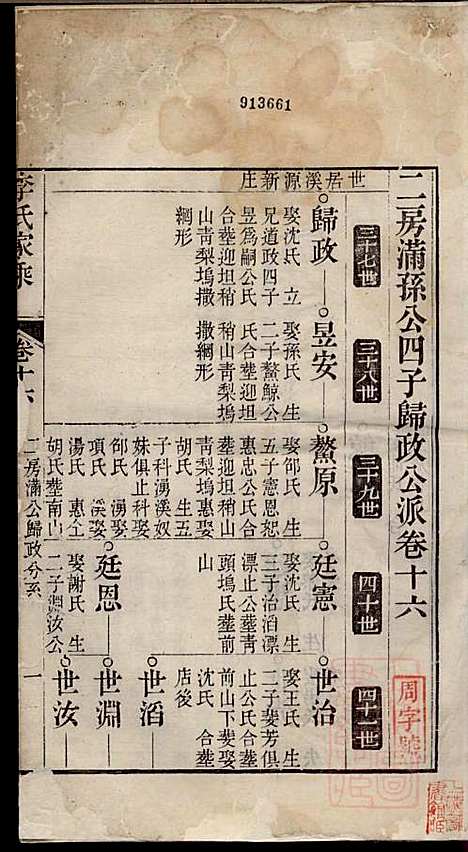 913661
二房滿孫公四子歸政公派卷十六
周字號
三十七世
三十八世
三十九世
四十世
四十一世
世居溪源新庄
歸政
娶沈氏 立
兄道政四子
昱爲嗣公氏
合塟迎坦稍
山靑梨塢撒
網形
昱安
娶孫氏 生
二子鰲鯨公
氏合塟迎坦
稍山靑梨塢
撒網形
鰲原
娶邵氏 生
五子憲恩恕
惠忠公氏合
塟迎坦稍山
靑梨塢惠娶
胡氏 生五
子科湧溪奴
妹俱止科娶
邰氏 湧娶
項氏 溪娶
湯氏 惠仝
胡氏塟南山
廷憲
娶沈氏 生
三子治滔漂
漂止公塟靑
頭塢氏塟前
山
廷恩
娶謝氏 生
二子淵汝公
世治
娶王氏 生
二子斐芳俱
止公氏合塟
前山下斐娶
沈氏 合塟
店後
世滔
世淵
世汝
二房滿公歸政分系
一
李氏家乘
卷十六